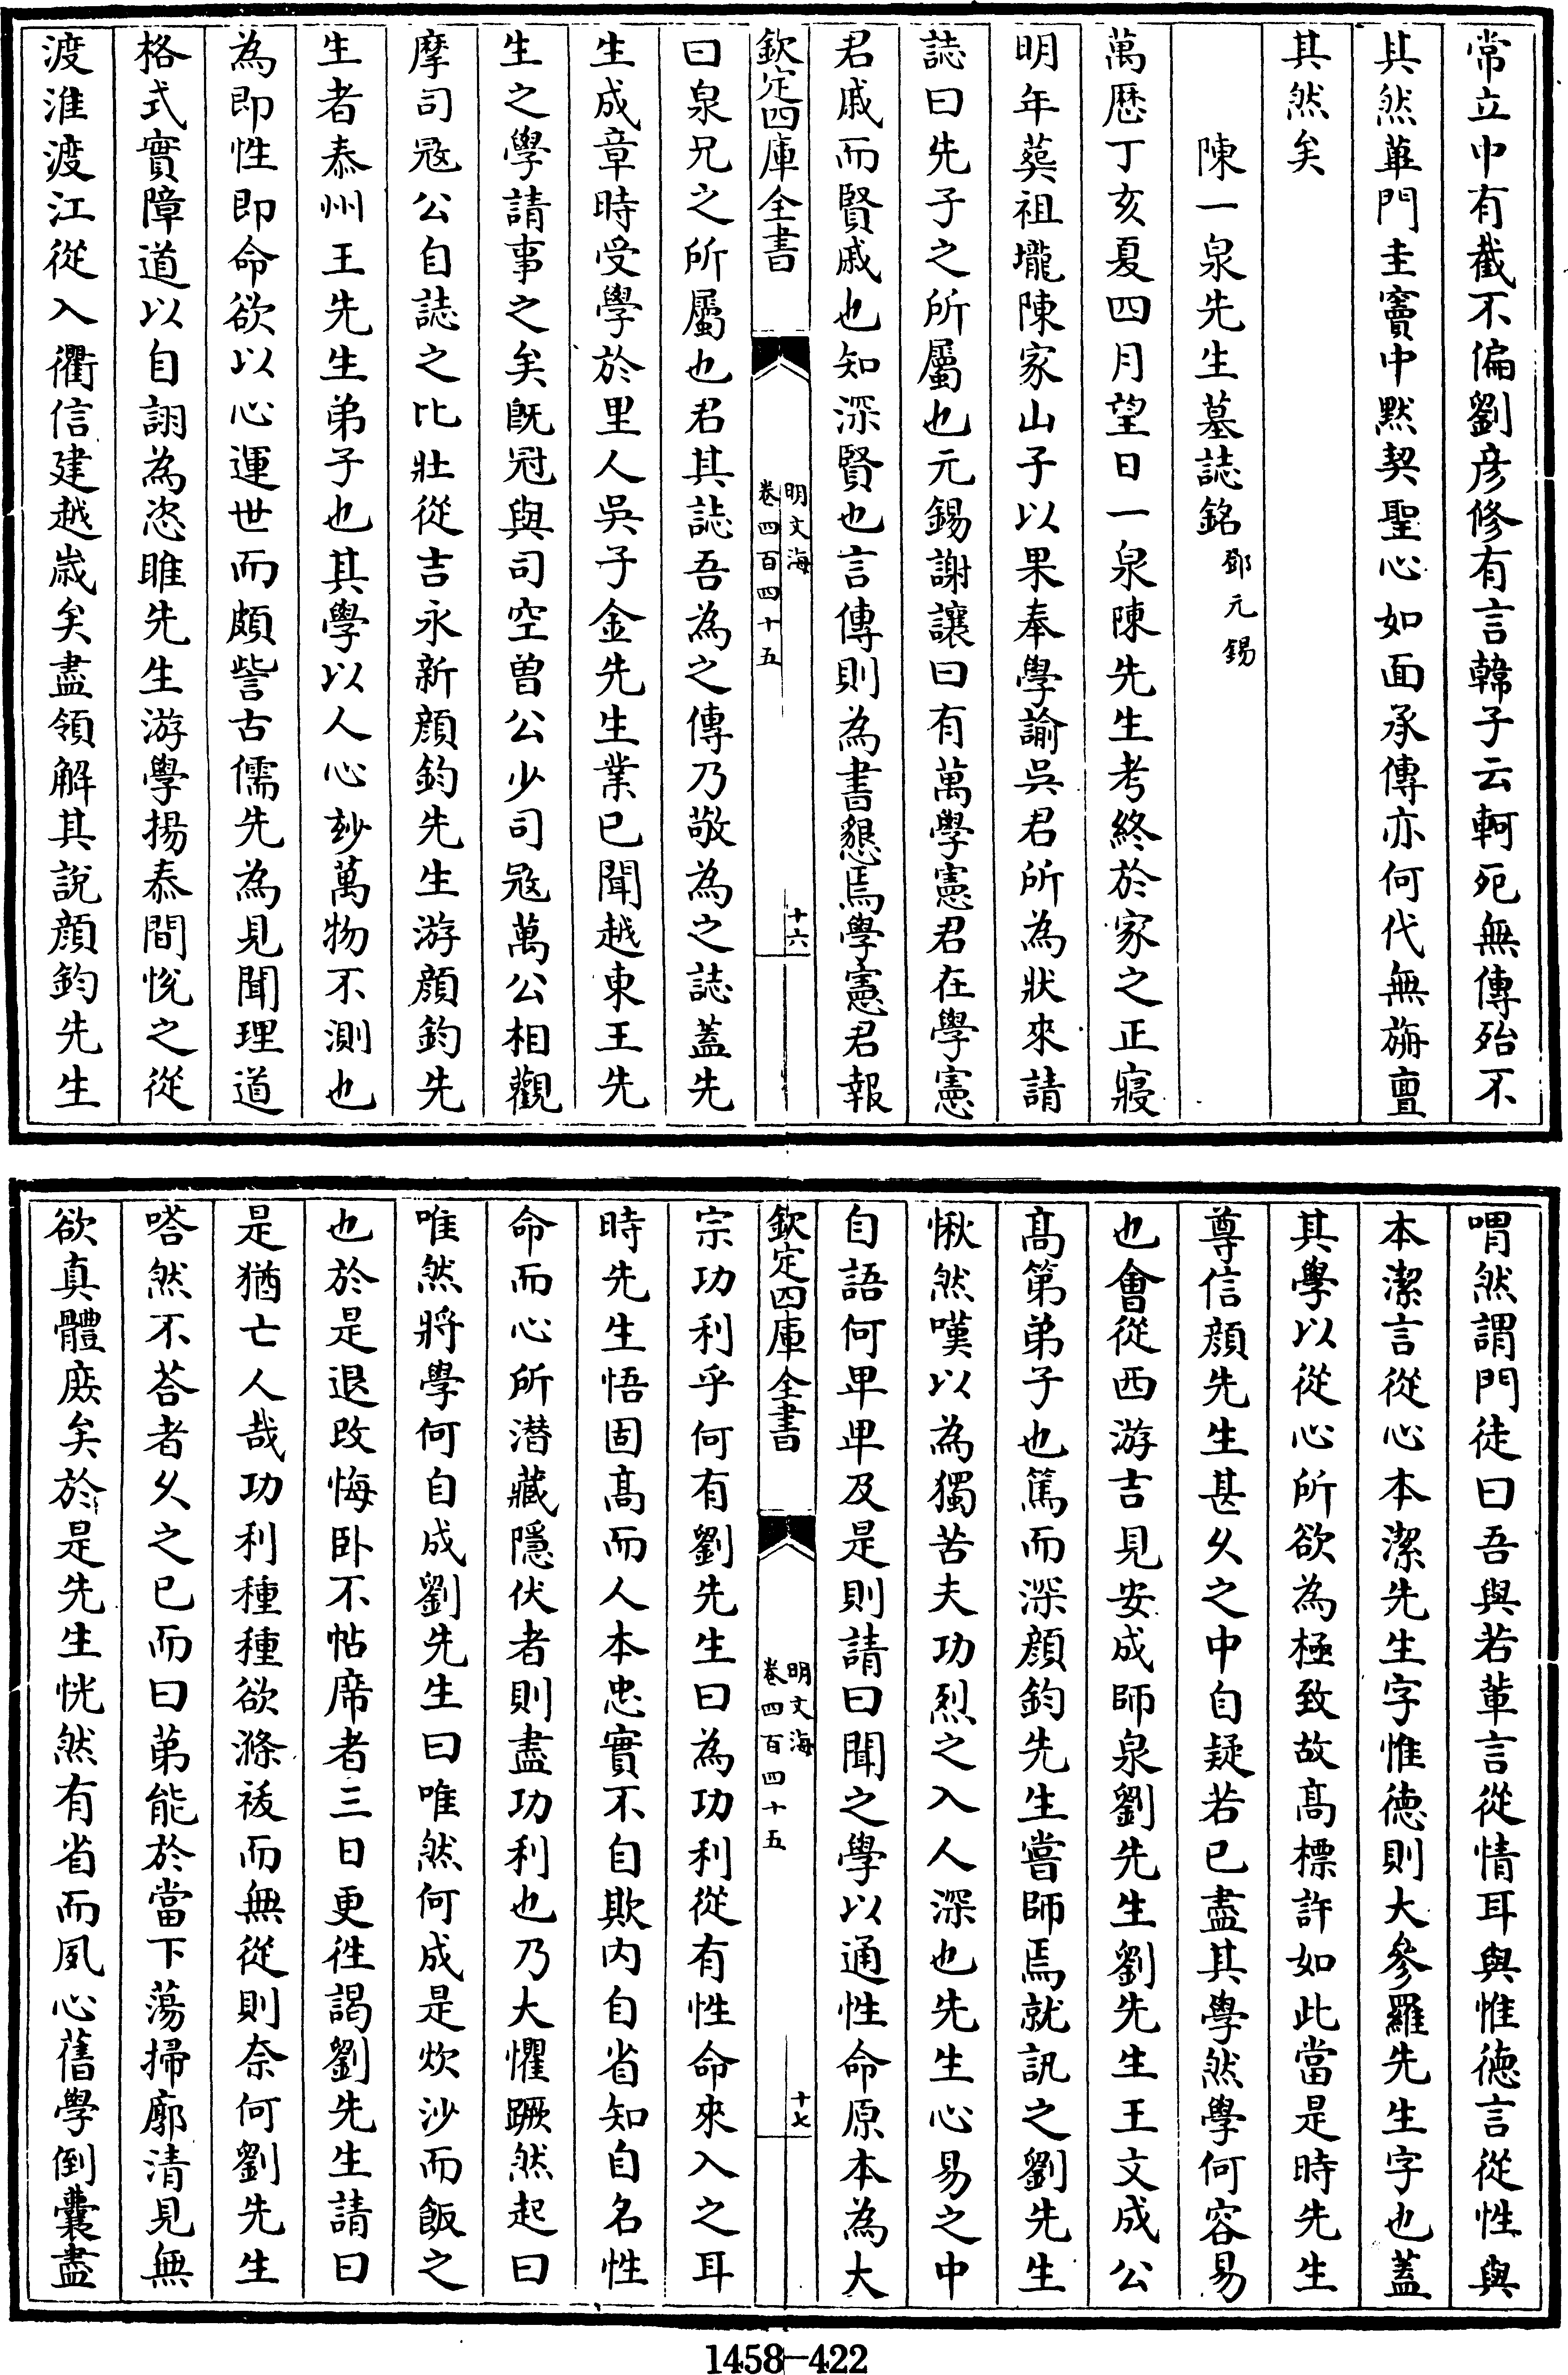 常立中有截不偏劉彦修有言韓子云軻死無傳殆不
其然蓽門圭竇中黙契聖心如面承傳亦何代無旃亶
其然矣
陳一泉先生墓誌銘鄧元錫
萬歴丁亥夏四月望日一泉陳先生考終於家之正寢
明年葬祖壠陳家山子以果奉學諭吳君所為狀來請
誌曰先子之所屬也元錫謝讓曰有萬學憲君在學憲
君戚而賢戚也知深賢也言傳則為書懇焉學憲君報
欽定四庫全書
明文海
卷四百四十五
十六
曰泉兄之所屬也君其誌吾為之傳乃敬為之誌蓋先
生成章時受學於里人吳子金先生業已聞越東王先
生之學請事之矣旣冠與司空曽公少司宼萬公相觀
摩司宼公自誌之比壯從吉永新顔鈞先生游顔鈞先
生者泰州王先生弟子也其學以人心玅萬物不測也
為即性即命欲以心運世而頗訾古儒先為見聞理道
格式實障道以自詡為恣睢先生游學揚泰間悅之從
渡淮渡江從入衢信建越歳矣盡領解其說顔鈞先生
喟然謂門徒曰吾與若軰言從情耳與惟徳言從性與
本潔言從心本潔先生字惟徳則大參羅先生字也蓋
其學以從心所欲為極致故髙標許如此當是時先生
尊信顔先生甚乆之中自疑若已盡其學然學何容易
也會從西游吉見安成師泉劉先生劉先生王文成公
髙第弟子也篤而深顔鈞先生嘗師焉就訊之劉先生
愀然嘆以為獨苦夫功烈之入人深也先生心易之中
自語何卑卑及是則請曰聞之學以通性命原本為大
欽定四庫全書
明文海
卷四百四十五
十七
宗功利乎何有劉先生曰為功利從有性命來入之耳
時先生悟固髙而人本忠實不自欺内自省知自名性
命而心所潜藏隱伏者則盡功利也乃大懼蹶然起曰
唯然將學何自成劉先生曰唯然何成是炊沙而飯之
也於是退改悔卧不帖席者三日更徃謁劉先生請曰
是猶亡人哉功利種種欲滌祓而無從則奈何劉先生
嗒然不荅者乆之已而曰弟能於當下蕩掃廓清見無
欲真體庶矣於是先生恍然有省而夙心舊學倒囊盡
1458-422